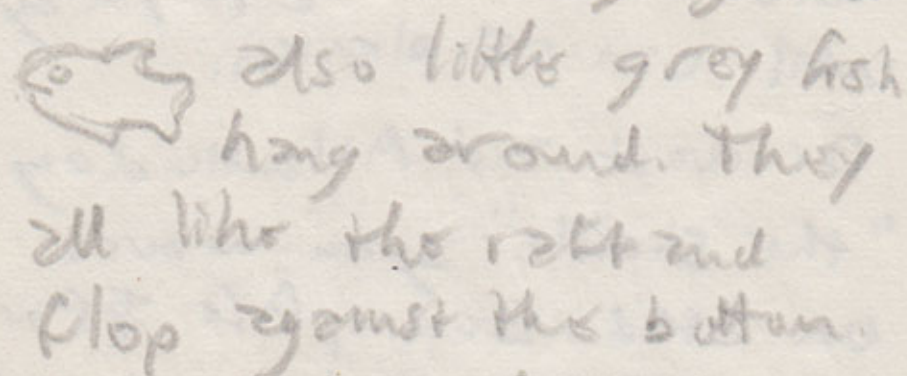 also little grey fish
hang around. They
all like the raft and
flop against the bottom.